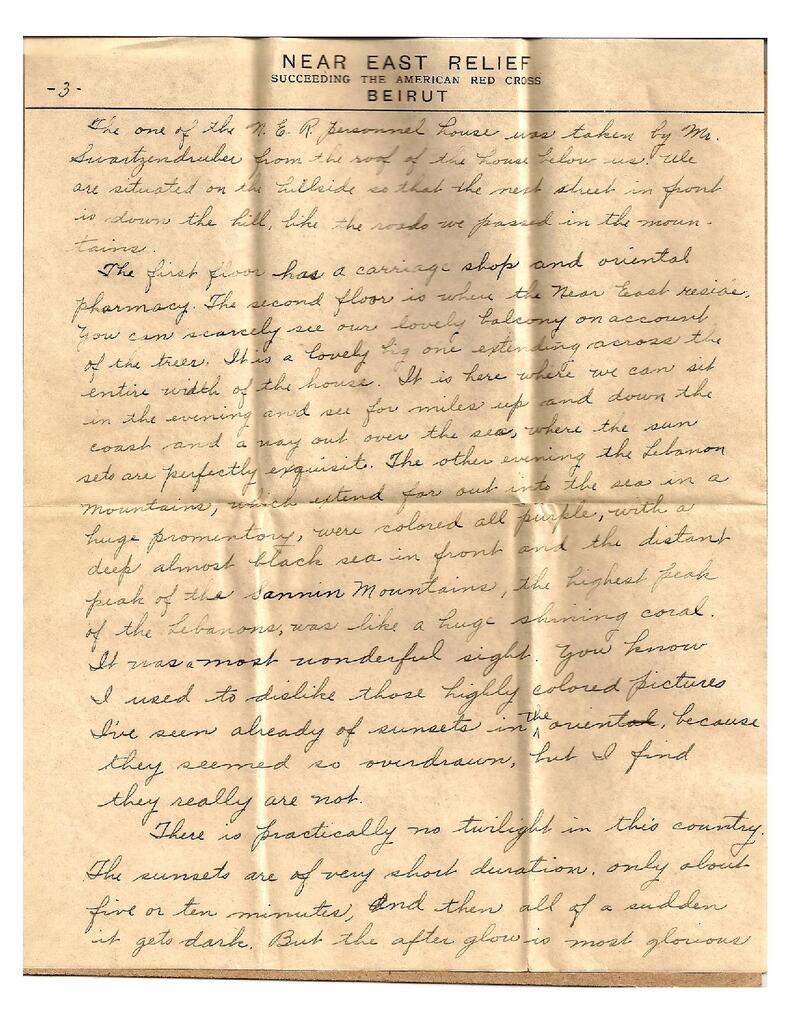 NEAR EAST RELIEF
SUCCEEDING THE AMERICAN RED CROSS
BEIRUT
-3-
The one of the N.E.R. personnel house was taken by Mr.
Swartzendruber from the roof of the house below us. We
are situated on the hillside so that the next street in front
is down the hill, like the roads we passed in the moun-
tains.
The first floor has a carriage shop and oriental
pharmacy. The second floor is where the Near East reside.
You can scarcely see our lovely balcony on account
of the trees. It is a lovely big one extending across the
entire width of the house. It is here where we can sit
in the evening and see for miles up and down the
coast and a way out over the sea, where the sun
sets are perfectly exquisit. The other evening the Lebanon
Mountains, which extend far out into the sea in a
huge promentory, were colored all purple, with a
deep almost black sea in front and the distant
peak of the Sannin Mountains, the highest peak
of the Lebanons, was like a huge shining coral.
It was a most wonderful sight. You know
I used to dislike those highly colored pictures
I've seen already of sunsets in the oriental, because
they seemed so overdrawn, but I find
they really are not.
There is practically no twilight in this country.
The sunsets are of very short duration, only about
five or ten minutes, and then all of a sudden
it gets dark. But the after glow is most glorious